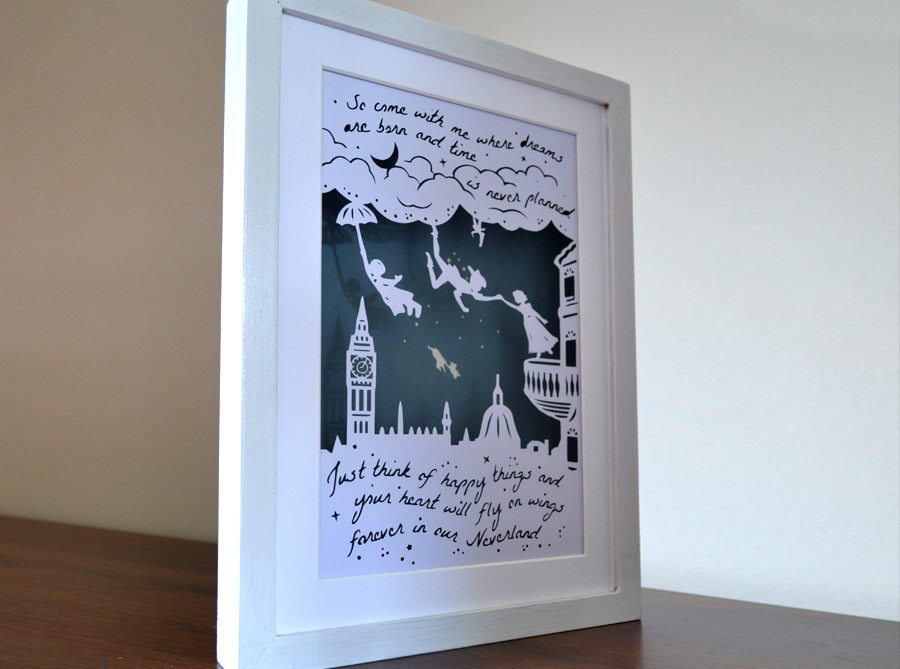 So come with me where dreams
are born and time
is never planned
Just think of happy things and
your heart will fly on wings
forever in our Neverland